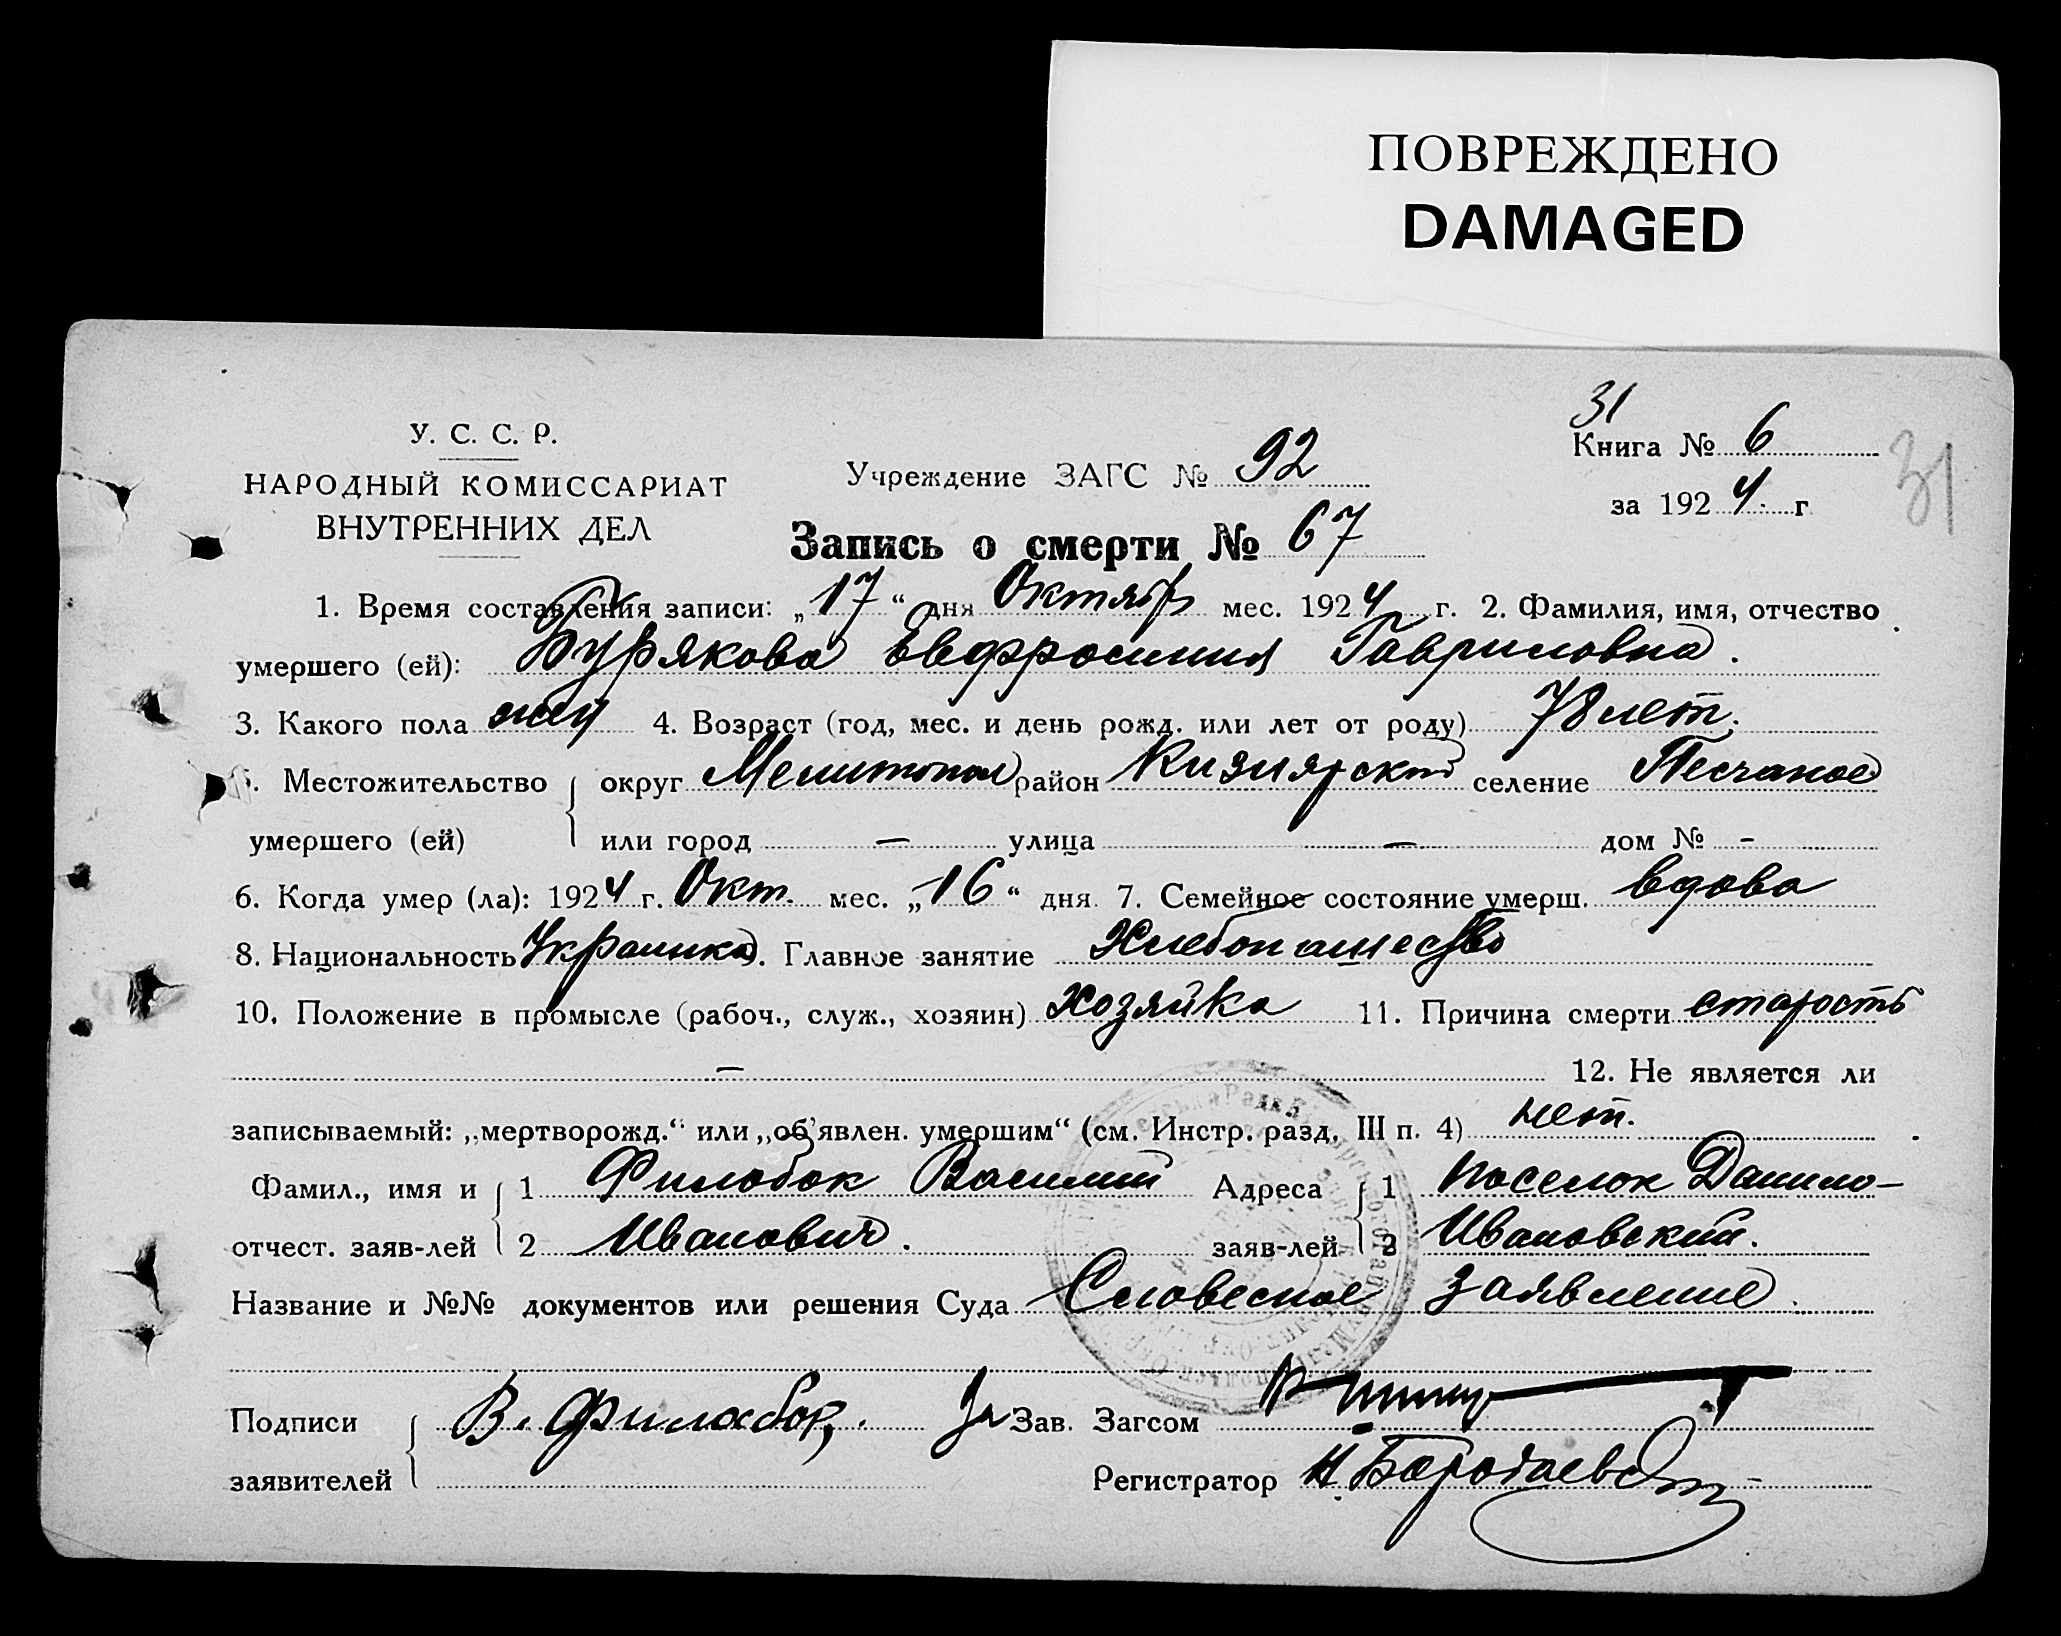 ПОВРЕЖДЕНО
DAMAGED
31
У. С. С. Р.
НАРОДНЫЙ КОМИССАРИАТ
ВНУТРЕННИХ ДЕЛ
Учреждение ЗАГС № 92
Книга № 6
за 1924 г.
31
Запись о смерти № 67
1. Время составления записи: „17“ дня Октябр мес. 1924 г. 2. Фамилия, имя, отчество
умершего (ей): Бурякова Евфросиния Гавриловна.
3. Какого пола жен 4. Возраст (год, мес. и день рожд. или лет от роду) 78 лет.
5. Местожительство округ Мелитопол район Кизиярский селение Песчаное
умершего (ей) или город — улица — дом № -
6. Когда умер (ла): 1924 г. Окт. мес. „16“ дня. 7. Семейное состояние умерш. вдова
8. Национальность Украинка). Главное занятие Хлебопашество
10. Положение в промысле (рабоч., служ., хозяин) хозяйка 11. Причина смерти старость
— 12. Не является ли
записываемый: „мертворожд.“ или „об'явлен. умершим“ (см. Инстр. разд. III п. 4) нет.
Фамил., имя и 1 Филобок Василий Адреса 1 поселок Данило-
отчест. заяв-лей 2 Иванович. заяв-лей 2 Ивановский.
Название и №№ документов или решения Суда Словесное заявление.
Подписи В. Филобок За Зав. Загсом
заявителей Регистратор